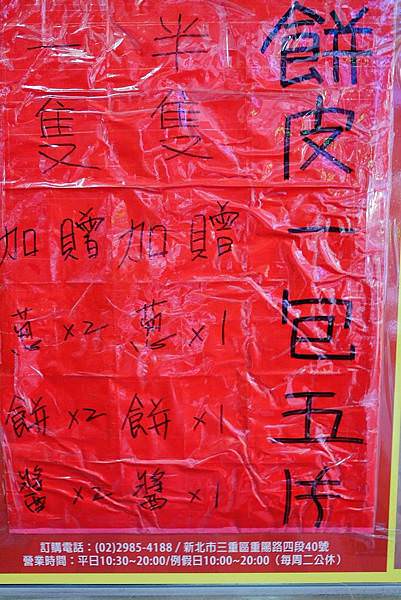 餅皮一包五片
半隻
加贈
蔥x1
餅x1
醬x1
一隻
加贈
蔥x2
餅x2
醬x2
訂購電話：(02)2985-4188 / 新北市三重區重陽路四段40號
營業時間：平日10:30~20:00/例假日10:00~20:00（每周二公休）